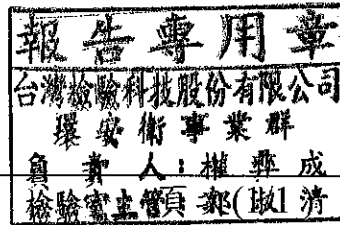 報告專用章
台灣檢驗科技股份有限公司
環安衛事業群
負責人：權彝成
檢驗室主管